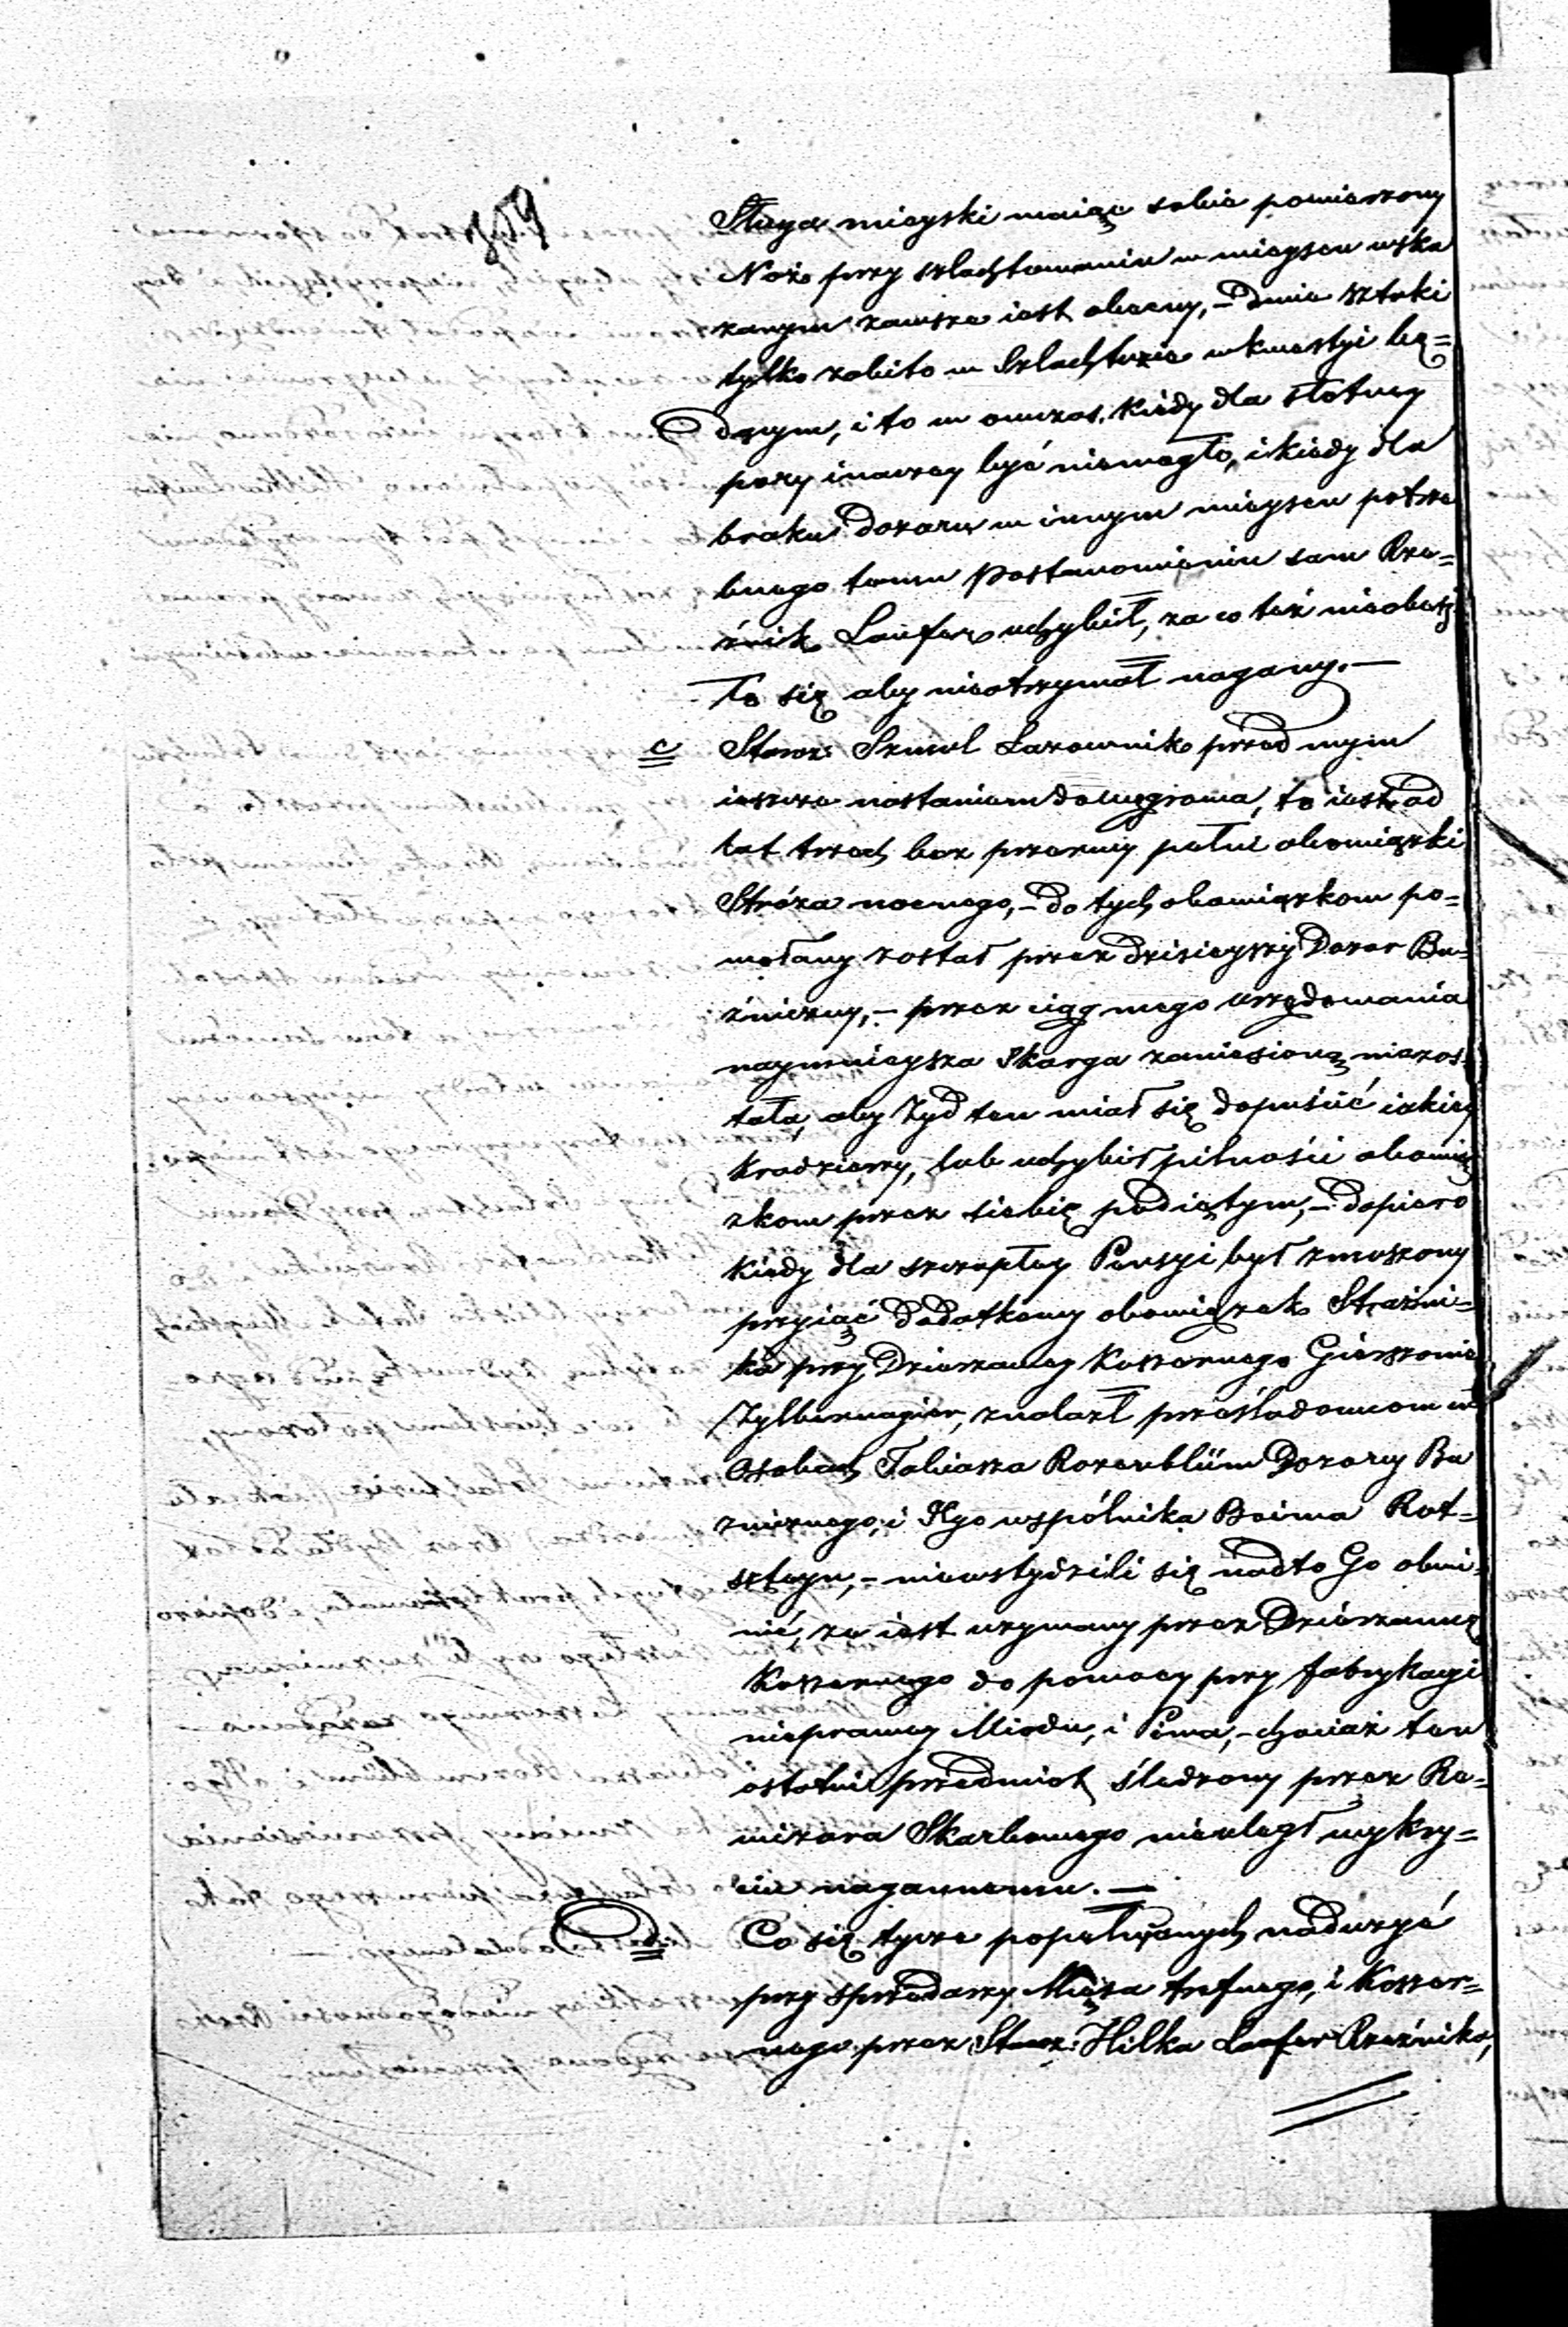 Sługa mieyski maiąc sobie powierzony
Noże przy szlachtowaniu w mieyscu wska
zanym zawsze iest obecny, – dwie sztuki
tylko zabito w Szlachtuzie w kwestyi bę=
dącym, i to w owczas, kiedy dla słotney
pory inaczey być niemogło, i kiedy dla
braku dozoru w innym mieyscu potrze
bnego temu Postanowieniu sam Rze=
źnik Laufer uchybił, za co też nieobesz
ło się aby nieotrzymał nagany. —
c Staroz: Szmul Lazownik przed mym
ieszcze nastaniem do Węgrowa, to iest od
lat trzech bez przerwy pełni obowiązki
Stróża nocnego, – do tych obowiązkow po=
wołany został przez dzisieyszy Dozor Bo=
żniczny, – przez ciąg mego urzędowania
naymnieysza Skarga zaniesioną niezos=
tała, aby Żyd ten miał się dopuścić iakiey
Kradzieży, lub uchybił pilności obowią
zkom przez siebie podiętym, – dopiero
kiedy dla szczupłey Pensyi był zmuszony
przyiąć dodatkowy obowiązek Strażni=
ka przy Dzierzawcy Koszernego Gierszonie
Zylbernagier, znalazł prześladowcow w
Osobach Tobiasza Rozenblüm Dozorcy Bo
żnicznego, i Jego wspólnika Boima Rot=
szteyn, – niewstydzili się nadto Go obwi=
nić, że iest uzywany przez Dzierzawcę
Koszernego do pomocy przy fabrykacyi
nieprawey Miodu, i Piwa, – chociaż ten
ostatni przedmiot śledzony przez Re=
wizora Skarbowego nieuległ wykry=
ciu nagannemu. —
d Co się tycze popełnionych nadużyć
przy sprzedarzy Mięsa trefnego, i Koszer=
nego przez Staroz: Hilka Laufer Rzeźnika,